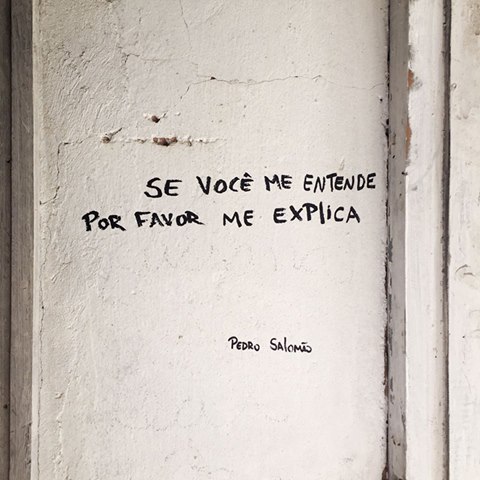 SE VOCÊ ME ENTENDE
POR FAVOR ME EXPLICA
PEDRO SALOMÃO